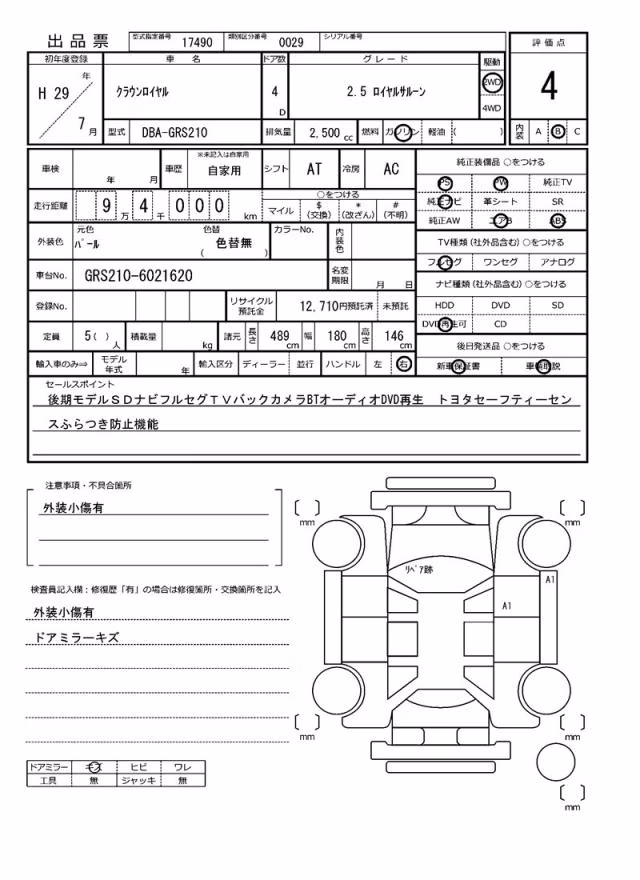 出品票 型式指定番号 17490 類別区分番号 0029 シリアル番号
評価点
4
内装 A B C
初年度登録 車名 ドア数 グレード 駆動
H 29 年 7 月 クラウンロイヤル 4 D 2.5 ロイヤルサルーン 2WD 4WD
型式 DBA-GRS210 排気量 2,500 cc 燃料 ガソリン 軽油 ( )
車検 年 月 車歴 ※未記入は自家用 自家用 シフト AT 冷房 AC
走行距離 9 万 4 千 0 0 0 km
○をつける
マイル $ (交換) * (改ざん) # (不明)
外装色 元色 パール 色替 ( 色替無 ) カラーNo. 内装色
車台No. GRS210-6021620 名変期限 月 日
登録No. リサイクル預託金 12,710円預託済 未預託
定員 5( )人 積載量 kg 諸元 長さ 489 cm 幅 180 cm 高さ 146 cm
輸入車のみ⇨ モデル年式 年 輸入区分 ディーラー 並行 ハンドル 左 右
純正装備品 ○をつける
PS PW 純正TV
純正ナビ 革シート SR
純正AW エアB ABS
TV種類(社外品含む) ○をつける
フルセグ ワンセグ アナログ
ナビ種類(社外品含む) ○をつける
HDD DVD SD
DVD再生可 CD
後日発送品 ○をつける
新車保証書 車輌取説
セールスポイント
後期モデルSDナビフルセグTVバックカメラBTオーディオDVD再生 トヨタセーフティーセン
スふらつき防止機能
注意事項・不具合箇所
外装小傷有
検査員記入欄:修復歴「有」の場合は修復箇所・交換箇所を記入
外装小傷有
ドアミラーキズ
ドアミラー キズ ヒビ ワレ
工具 無 ジャッキ 無
[ ] mm
[ ] mm
リペア跡
A1
A1
[ ] mm
[ ] mm
[ ] mm